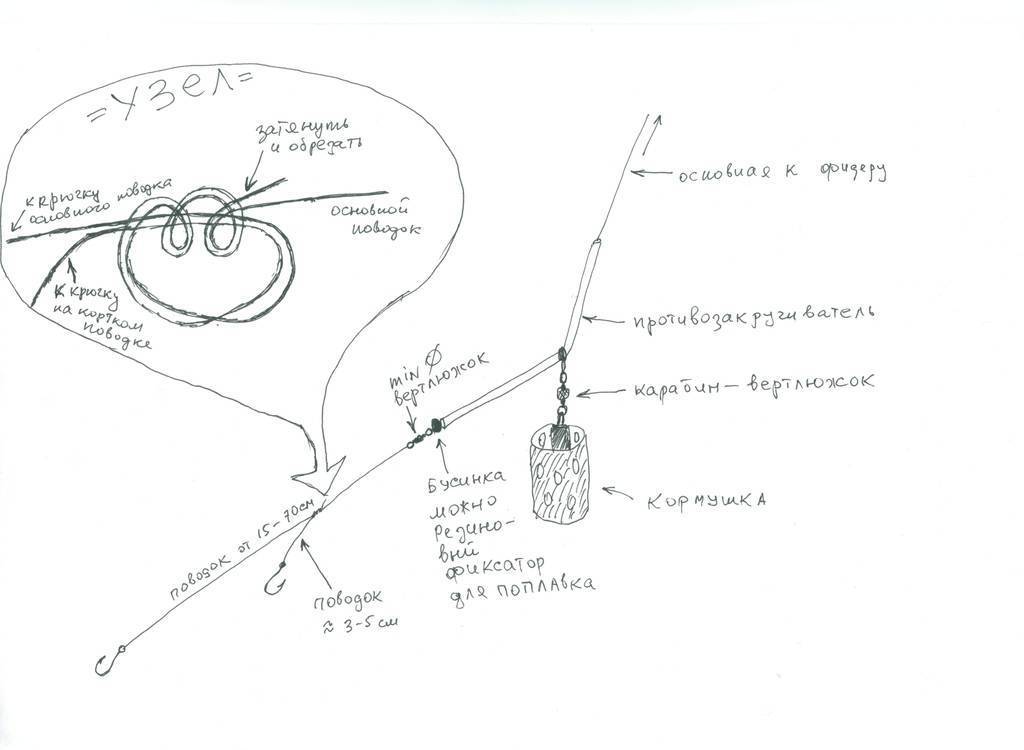 =УЗЕЛ=
затянуть
и обрезать
к крючку
основного поводка
основной
поводок
к крючку
на кортком
поводке
основная к фидеру
противозакручиватель
карабин-вертлюжок
кормушка
min Ø
вертлюжок
Бусинка
можно
Резино-
вый
фиксатор
для поплавка
поводок от 15-70см
поводок
≈ 3-5 см